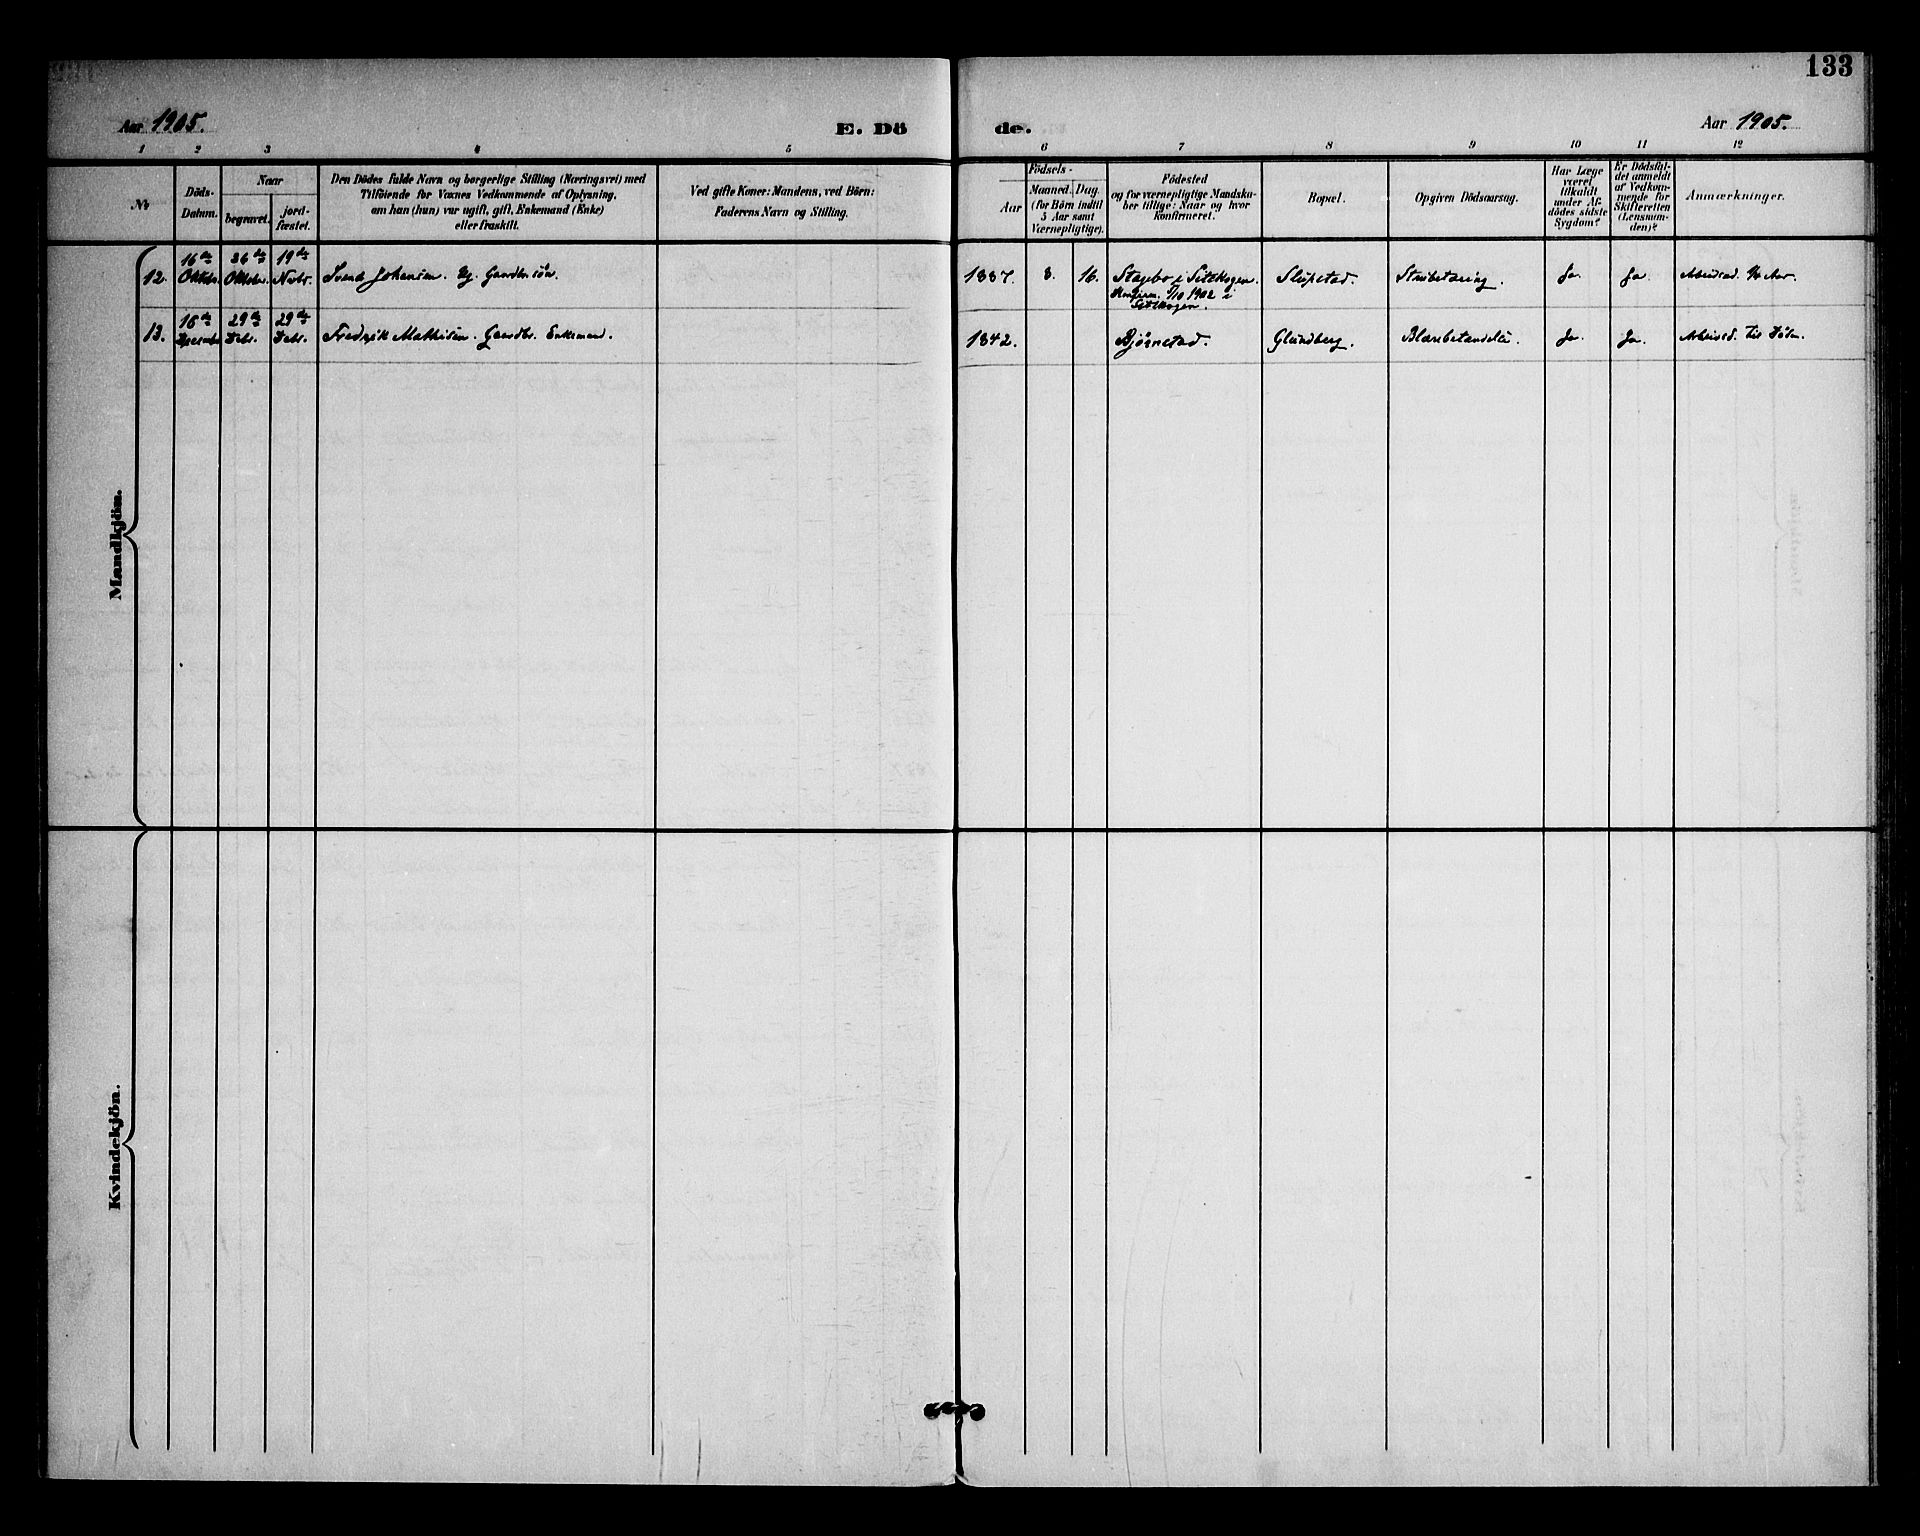 133
Aar 1905.
E. Dö
de.
Aar 1905.
1 2 3 4 5 6 7 8 9 10 11 12
№
Döds-
Datum.
Naar
begravet.
jord-
fæstet.
Den Dödes fulde Navn og borgerlige Stilling (Næringsvei) med
Tilföiende for Voxnes Vedkommende af Oplysning,
om han (hun) var ugift, gift, Enkemand (Enke)
eller fraskilt.
Ved gifte Koner: Mandens, ved Börn:
Faderens Navn og Stilling.
Födsels-
Aar
Maaned. Dag.
(for Börn indtil
5 Aar samt
Værnepligtige).
Födested
og for værnepligtige Mandska-
ber tillige: Naar og hvor
Konfirmeret.
Bopæl.
Opgiven Dödsaarsag.
Har Læge
været
tilkaldt
under Af-
dödes sidste
Sygdom?
Er Dödsfal-
det anmeldt
af Vedkom-
mende for
Skifteretten
(Lensman-
den)?
Anmærkninger.
Mandkjön.
12. 16de Oktbr. 26de Oktbr. 19de Novbr. Svend Johansen. Ug. Gaardbr.søn. 1887. 8. 16. Stagebo i Setskogen. Slupstad. Strubetæring. Ja. Ja.
Konfirm. 5/10 1902 i
Setskogen.
13. 16de 29de Debr. 29de Debr. Fredrik Mathisen. Gaardbr. Enkemand. 1842. Bjørnestad. Glundberg. Ja. Ja.
Kvindekjön.